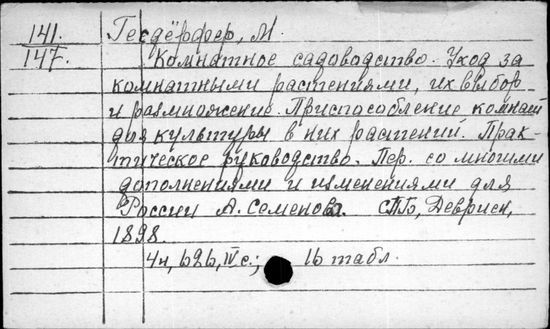 141. Гесдёрфер, М.
147. Комнатное садоводство. Уход за
комнатными растениями, их выбор
и размножение. Приспособление комнат
для культуры в них растений. Прак-
тическое руководство. Пер. со многими
дополнениями и изменениями для
России А. Семенова. СПБ, Девриен,
1898.
4н, 626, IV с.; 16 табл.